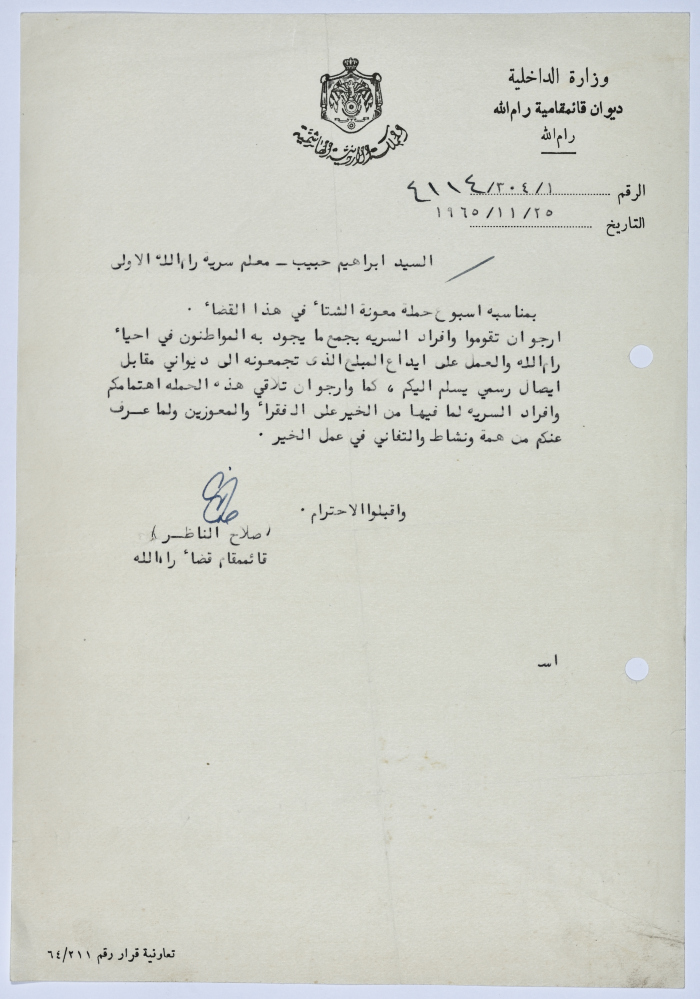 وزارة الداخلية
ديوان قائمقامية رام الله
رام الله
المملكة الأردنية الهاشمية
الرقم ٤١١٤/٣٠٤/١
التاريخ ١٩٦٥/١١/٢٥
السيد ابراهيم حبيب ـ معلم سرية رام الله الاولى
بمناسبه اسبوع حملة معونة الشتاء في هذا القضاء .
ارجو ان تقوموا وافراد السريه بجمع ما يجود به المواطنون في احياء
رام الله والعمل على ايداع المبلغ الذى تجمعونه الى ديواني مقابل
ايصال رسمي يسلم اليكم ، كما وارجو ان تلاقي هذه الحمله اهتمامكم
وافراد السريه لما فيها من الخير على الفقراء والمعوزين ولما عرف
عنكم من همة ونشاط والتفاني في عمل الخير .
واقبلوا الاحترام .
( صلاح الناظر )
قائممقام قضاء رام الله
اسـ
تعاونية قرار رقم ٦٤/٢١١